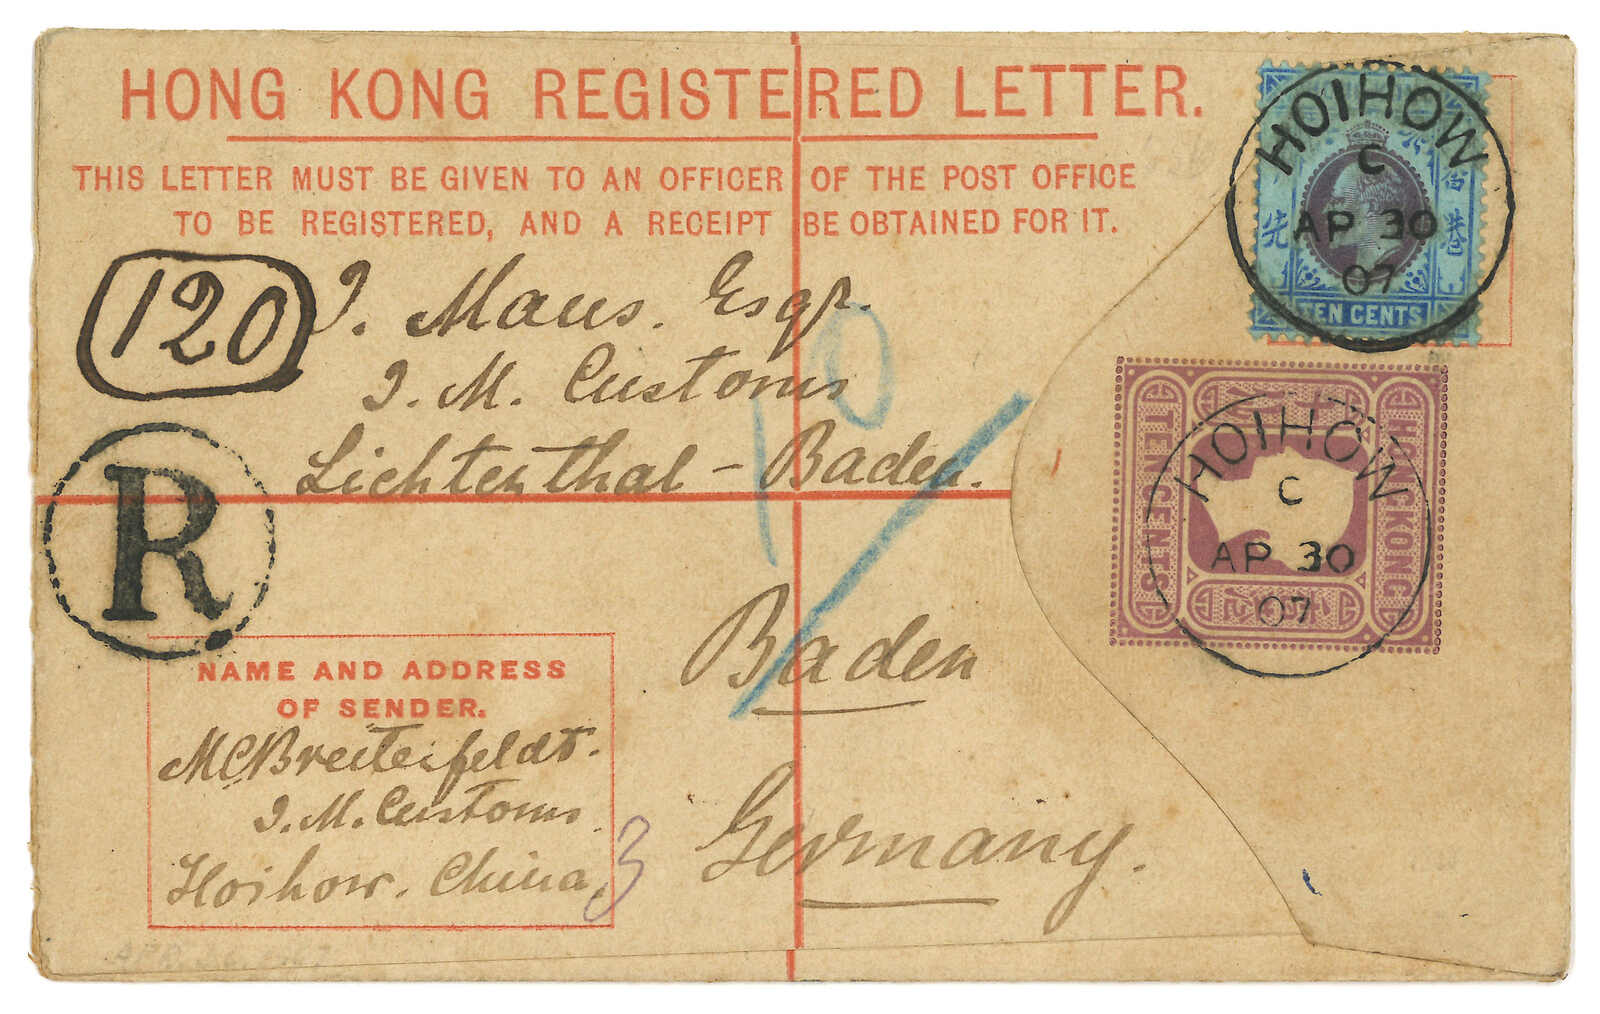 HONG KONG REGISTERED LETTER.
THIS LETTER MUST BE GIVEN TO AN OFFICER OF THE POST OFFICE
TO BE REGISTERED, AND A RECEIPT BE OBTAINED FOR IT.
HOIHOW
C
AP 30
07
TEN CENTS
120
J. Maus. Esqr.
I. M. Customs
Lichtenthal - Baden.
10
R
HONGKONG
TEN CENTS
HOIHOW
C
AP 30
07
Baden
Germany.
NAME AND ADDRESS
OF SENDER.
MCBreitenfeldt.
I. M. Customs.
Hoihow. China.
3